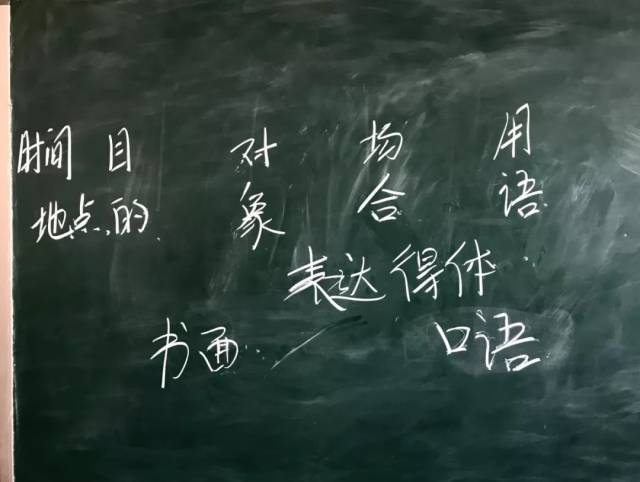 时间 目 对 场 用
地点 的 象 合 语
表达得体
书面 / 口语